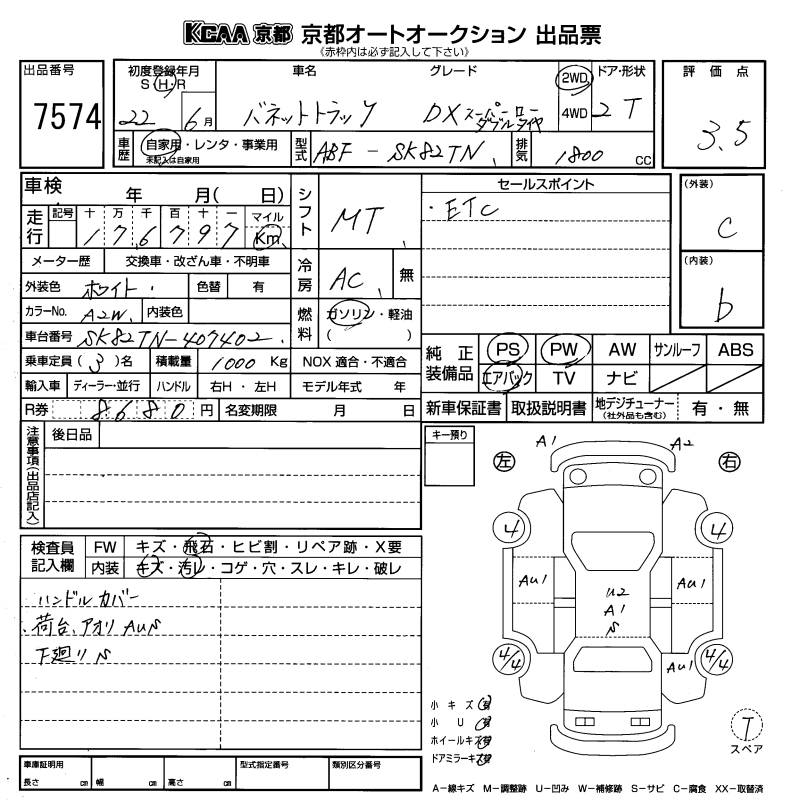 KCAA 京都 京都オートオークション 出品票
《赤枠内は必ず記入して下さい》
出品番号 7574
初度登録年月 S・H・R 22 6月
車名 バネットトラック
グレード DX スーパーロー ダブルタイヤ
2WD 4WD
ドア・形状 2 T
評価点 3.5
車歴 自家用・レンタ・事業用 未記入は自家用
型式 ABF-SK82TN
排気 1800 CC
車検 年 月( 日)
走行 記号 十 万 千 百 十 一 マイル Km
176797
メーター歴 交換車・改ざん車・不明車
外装色 ホワイト 色替 有
カラーNo. A2W 内装色
車台番号 SK82TN-407402
乗車定員(3)名 積載量 1000 Kg NOX 適合・不適合
輸入車 ディーラー・並行 ハンドル 右H・左H モデル年式 年
R券 8680 円 名変期限 月 日
シフト MT
冷房 AC 無
燃料 ガソリン・軽油 ( )
セールスポイント
・ETC
(外装) C
(内装) b
純正装備品 PS PW AW サンルーフ ABS
エアバック TV ナビ
新車保証書 取扱説明書 地デジチューナー (社外品も含む) 有・無
注意事項(出品店記入) 後日品
キー預り
検査員記入欄 FW キズ・飛石・ヒビ割・リペア跡・X要
内装 キズ・汚レ・コゲ・穴・スレ・キレ・破レ
ハンドルカバー
荷台、アオリ AUS
下廻り S
左 右
A1 A2
4 4
AU1 U2 AU1
A1
S
4/4 4/4
AU1
小キズ有
小U有
ホイールキズ有
ドアミラーキズ有
T
スペア
車庫証明用 長さ cm 幅 cm 高さ cm
型式指定番号 類別区分番号
A−線キズ M−調整跡 U−凹み W−補修跡 S−サビ C−腐食 XX−取替済